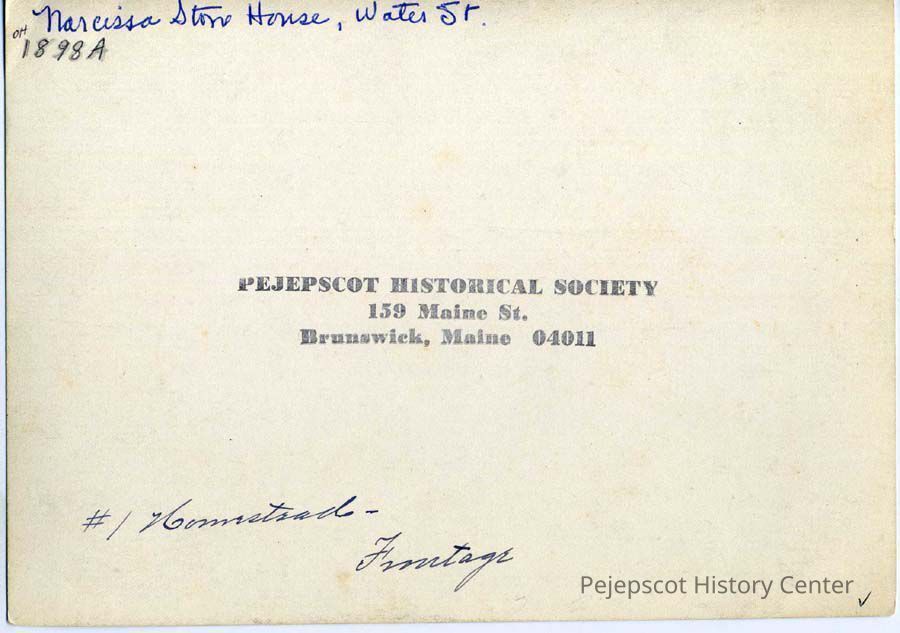 Narcissa Stone House, Water St.
OH
1898A
PEJEPSCOT HISTORICAL SOCIETY
159 Maine St.
Brunswick, Maine 04011
#1 Homestead -
Frontage
Pejepscot History Center